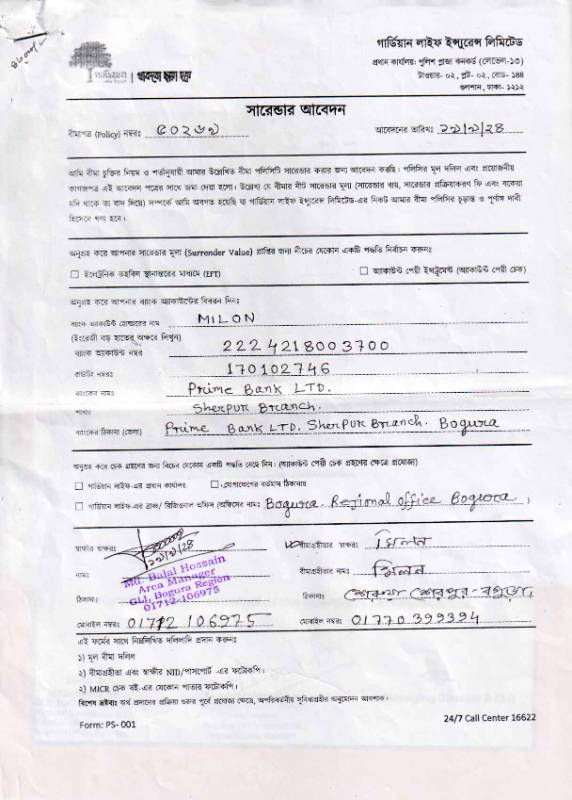 গার্ডিয়ান লাইফ ইন্স্যুরেন্স লিমিটেড
প্রধান কার্যালয়: পুলিশ প্লাজা কনকর্ড (লেভেল-১৩)
টাওয়ার- ০২, প্লট- ০২, রোড- ১৪৪
গুলশান, ঢাকা- ১২১২
গার্ডিয়ান
সারেন্ডার আবেদন
বীমাপত্র (Policy) নম্বরঃ ৫০২৬১
আবেদনের তারিখঃ ২১/১/২৪
আমি বীমা চুক্তির নিয়ম ও শর্তানুযায়ী আমার উল্লেখিত বীমা পলিসিটি সারেন্ডার করার জন্য আবেদন করছি। পলিসির মূল দলিল এবং প্রয়োজনীয়
কাগজপত্র এই আবেদন পত্রের সাথে জমা দেয়া হলো। উল্লেখ্য যে বীমার নীট সারেন্ডার মূল্য (সারেন্ডার ব্যয়, সারেন্ডার প্রক্রিয়াকরণ ফি এবং বকেয়া
যদি থাকে তা বাদ দিয়ে) সম্পর্কে আমি অবগত হয়েছি যা গার্ডিয়ান লাইফ ইন্স্যুরেন্স লিমিটেড-এর নিকট আমার বীমা পলিসির চূড়ান্ত ও পূর্ণাঙ্গ দাবী
হিসেবে গণ্য হবে।
অনুগ্রহ করে আপনার সারেন্ডার মূল্য (Surrender Value) প্রাপ্তির জন্য নীচের যেকোন একটি পদ্ধতি নির্বাচন করুনঃ
☐ ইলেট্রনিক তহবিল স্থানান্তরের মাধ্যমে (EFT)
☐ অ্যাকাউন্ট পেয়ী ইন্সট্রুমেন্ট (অ্যাকাউন্ট পেয়ী চেক)
অনুগ্রহ করে আপনার ব্যাংক অ্যাকাউন্টের বিবরন দিনঃ
ব্যাংক অ্যাকাউন্ট হোল্ডারের নাম MILON
(ইংরেজী বড় হাতের অক্ষরে লিখুন)
ব্যাংক অ্যাকাউন্ট নম্বর 2224218003700
রাউটিং নম্বরঃ 170102746
ব্যাংকের নামঃ Prime Bank LTD.
শাখাঃ Sherpur Branch.
ব্যাংকের ঠিকানা (জেলা) Prime Bank LTD. Sherpur Branch. Bogura
অনুগ্রহ করে চেক গ্রহণের জন্য নিচের যেকোন একটি পদ্ধতি বেছে নিন। (অ্যাকাউন্ট পেয়ী চেক গ্রহণের ক্ষেত্রে প্রযোজ্য)
☐ গার্ডিয়ান লাইফ-এর প্রধান কার্যালয়
☐ যোগাযোগের বর্তমান ঠিকানায়
☐ গার্ডিয়ান লাইফ-এর ব্রাঞ্চ/ রিজিওনাল অফিস (অফিসের নামঃ Bogura. Regional office Bogura )
স্বাক্ষীর স্বাক্ষরঃ ২১/১/২৪
বীমাগ্রহীতার স্বাক্ষরঃ মিলন
নামঃ
Md. Balal Hossain
Area Manager
GLI, Bogura Region
01712-106975
বীমাগ্রহীতার নামঃ মিলন
ঠিকানাঃ
ঠিকানাঃ শেরপুর-বগুড়া
মোবাইল নম্বরঃ 01712 106975
মোবাইল নম্বরঃ 01770399394
এই ফর্মের সাথে নিম্নলিখিত দলিলাদি প্রদান করুনঃ
১) মূল বীমা দলিল
২) বীমাগ্রহীতা এবং স্বাক্ষীর NID/পাসপোর্ট -এর ফটোকপি।
২) MICR চেক বই-এর যেকোন পাতার ফটোকপি।
বিশেষ দ্রষ্টব্যঃ অর্থ প্রদানের প্রক্রিয়া শুরুর পূর্বে প্রযোজ্য ক্ষেত্রে, অপরিবর্তনীয় সুবিধাগ্রহীর অনুমোদন আবশ্যক।
Form: PS- 001
24/7 Call Center 16622